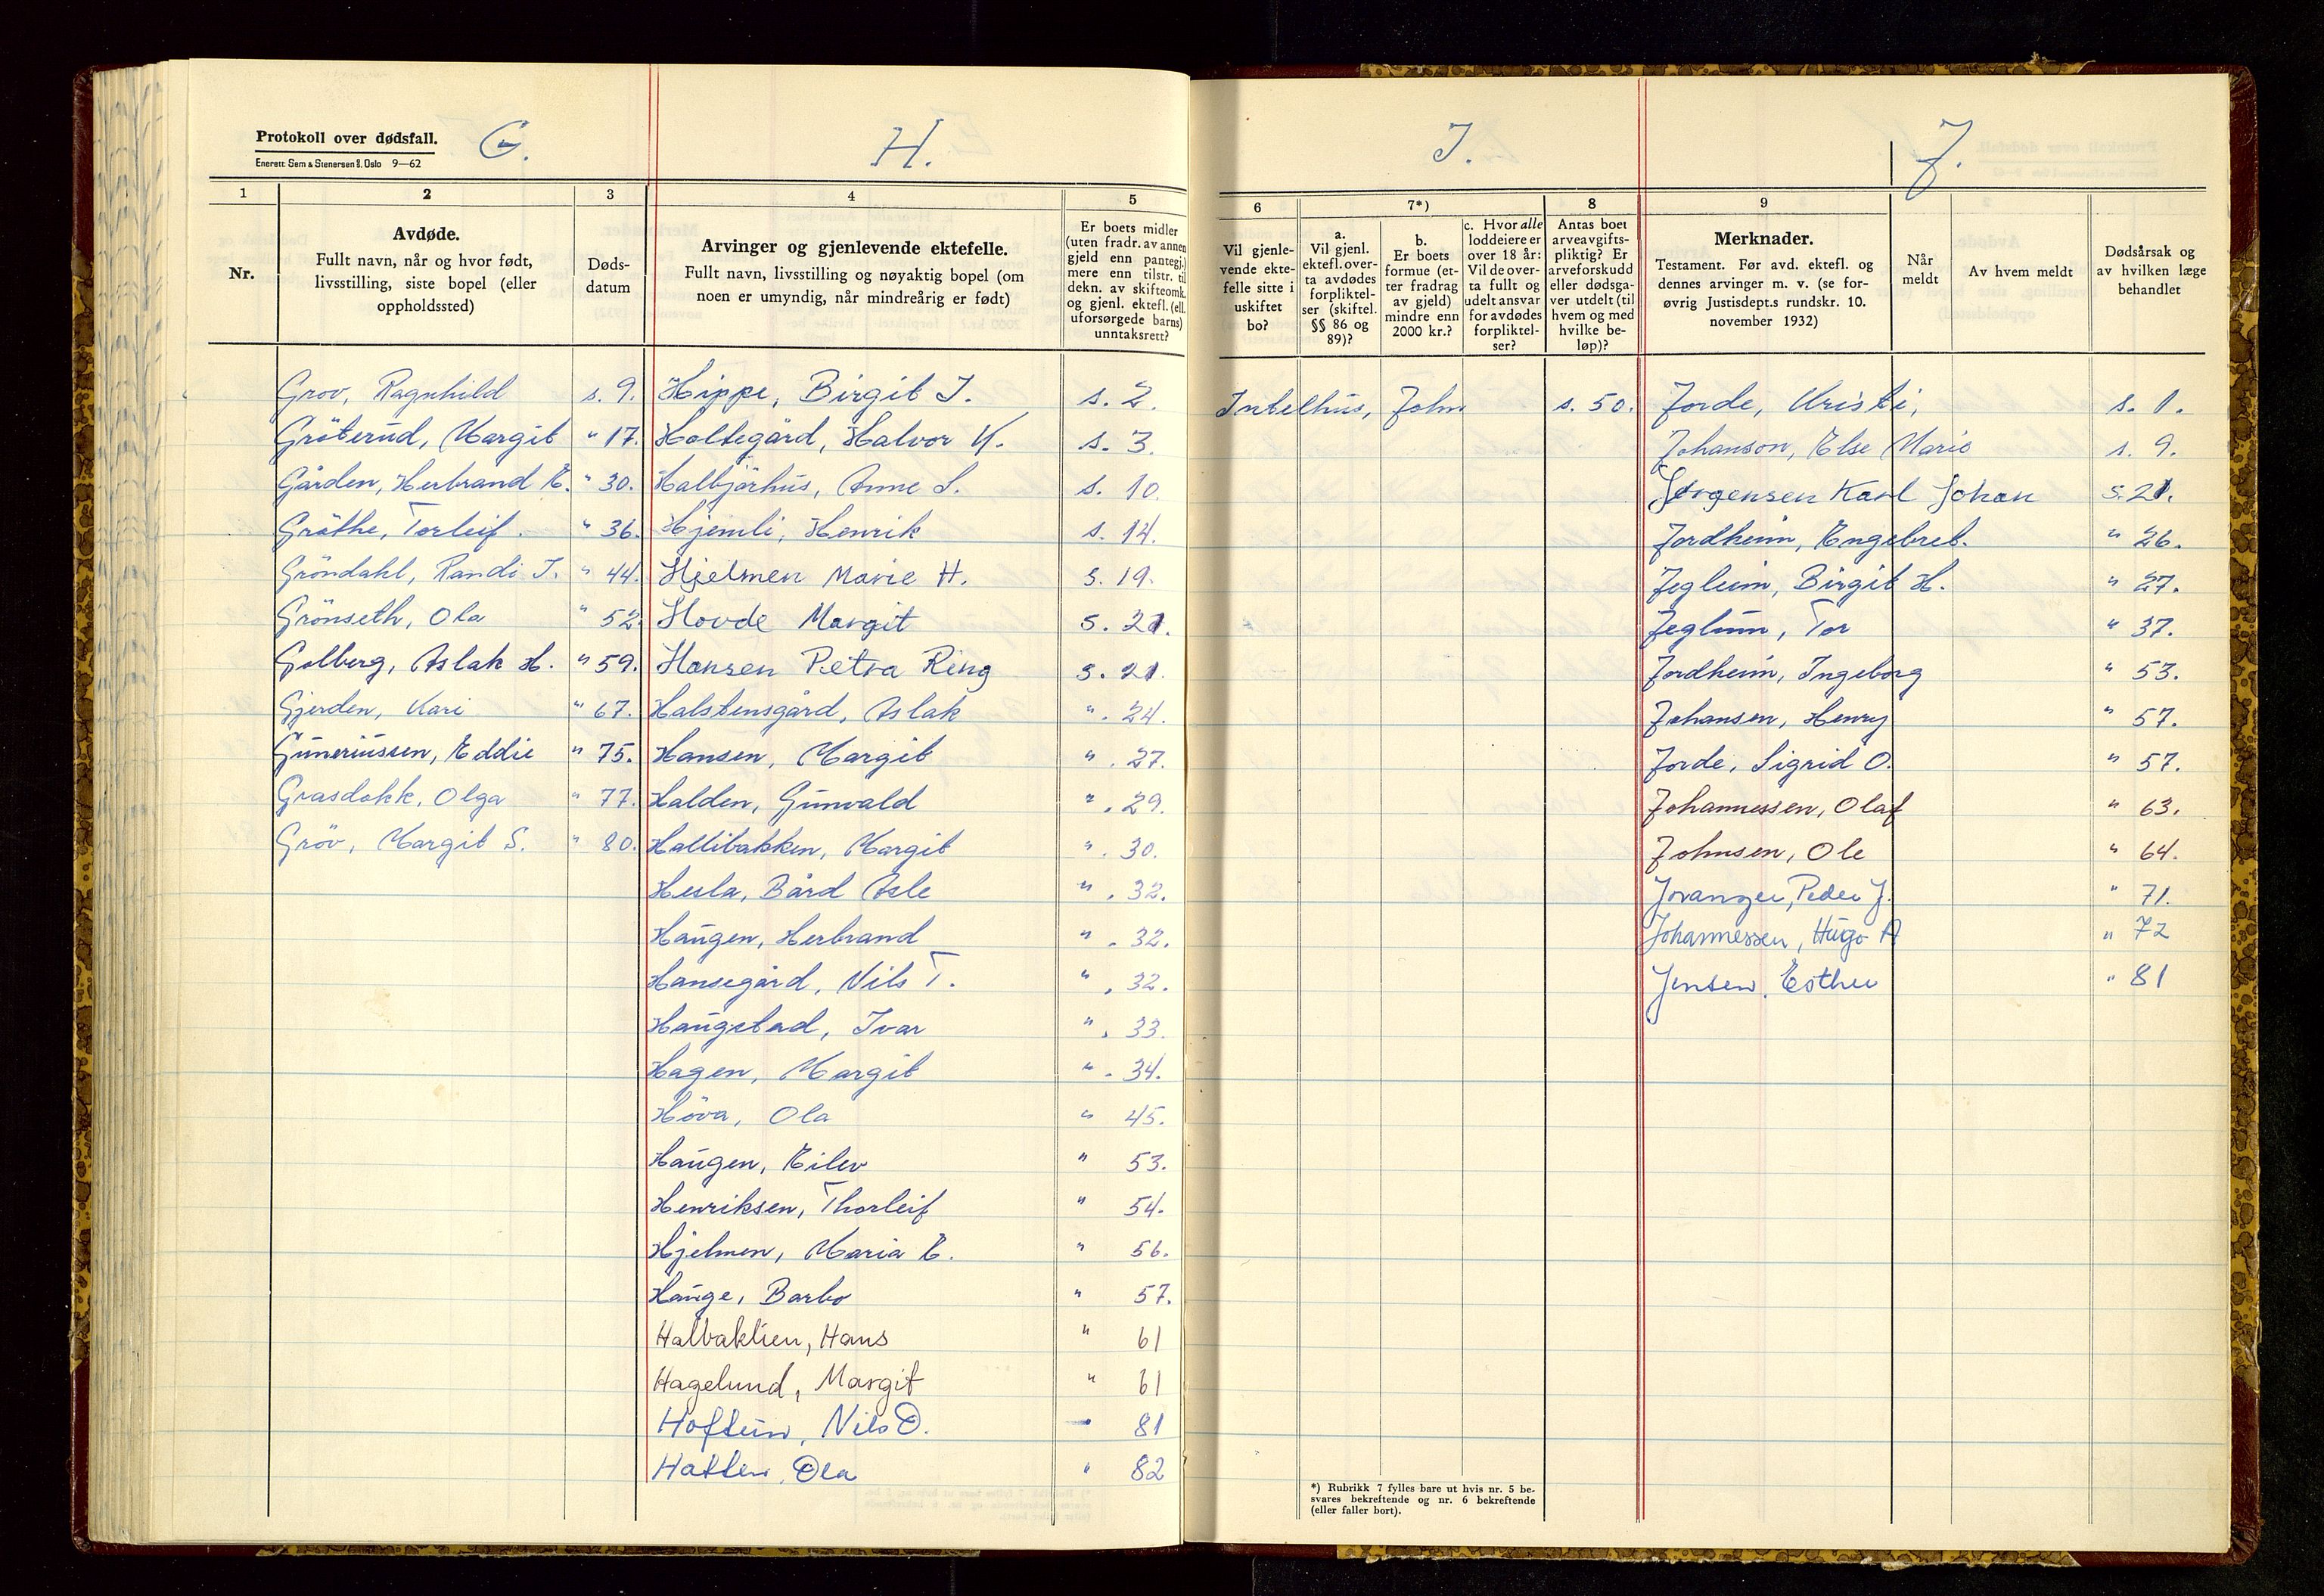 Protokoll over dødsfall.
Enerett: Sem & Stenersen A/S, Oslo 9—62
G.
H.
1
2
3
4
5
Nr.
Avdøde.
Fullt navn, når og hvor født,
livsstilling, siste bopel (eller
oppholdssted)
Døds-
datum
Arvinger og gjenlevende ektefelle.
Fullt navn, livsstilling og nøyaktig bopel (om
noen er umyndig, når mindreårig er født)
Er boets midler
(uten fradr. av annen
gjeld enn pantegj.)
mere enn tilstr. til
dekn. av skifteomk.
og gjenl. ektef. (ell.
uforsørgede barns)
unntaksrett?
Grov, Ragnhild s. 9.
Gröterud, Margit " 17.
Gården, Herbrand E. " 30.
Gröthe, Torleif. " 36.
Gröndahl, Randi T. " 44.
Grönseth, Ola " 52.
Golberg, Aslak H. " 59.
Gjerden, Kari " 67.
Guneriussen, Eddie " 75.
Grasdokk, Olga " 77.
Gröv, Margit S. " 80.
Hippe, Birgit T. s. 2.
Holtegård, Halvor K. s. 3.
Halbjørhus, Anne S. s. 10.
Hjemli, Henrik s. 14.
Hjelmen Marie H. s. 19.
Hovde Margit s. 21.
Hansen Petra Ring s. 21.
Halstensgård, Aslak ". 24.
Hansen, Margit ". 27.
Halden, Gunvald ". 29.
Hallibakken, Margit ". 30.
Hesla, Bård Asle ". 32.
Haugen, Herbrand ". 32.
Hansegård, Nils T. ". 32.
Haugstad, Ivar ". 33.
Hagen, Margit ". 34.
Höva, Ola " 45.
Haugen, Eilev " 53.
Henriksen, Thorleif " 54.
Hjelmen, Maria E. " 56.
Hauge, Barbo " 57.
Halbaklien, Hans " 61
Hagelund, Margit " 61
Hoftun, Nils O. " 81
Hatlen, Ola " 82
I.
J.
6
7*)
8
9
Vil gjenle-
vende ekte-
felle sitte i
uskiftet
bo?
a.
Vil gjenl.
ektefl. over-
ta avdødes
forpliktel-
ser (skiftel.
§§ 86 og
89)?
b.
Er boets
formue (et-
ter fradrag
av gjeld)
mindre enn
2000 kr.?
c. Hvor alle
loddeiere er
over 18 år:
Vil de over-
ta fullt og
udelt ansvar
for avdødes
forpliktel-
ser?
Antas boet
arveavgifts-
pliktig? Er
arveforskudd
eller dødsga-
ver utdelt (til
hvem og med
hvilke be-
løp)?
Merknader.
Testament. Før avd. ektefl. og
dennes arvinger m. v. (se for-
øvrig Justisdept.s rundskr. 10.
november 1932)
Når
meldt
Av hvem meldt
Dødsårsak og
av hvilken læge
behandlet
Intelhus, John s. 50.
Jorde, Kristi, s. 1.
Johanson, Else Marie s. 9.
Jørgensen Karl Johan s. 21.
Jordheim, Engebret. " 26.
Jegleim, Birgit H. " 27.
Jeglum, Tor " 37.
Jordheim, Ingeborg " 53.
Johansen, Henry " 57.
Jorde, Sigrid O. " 57.
Johannessen, Olaf " 63.
Johnsen, Ole " 64.
Jovanger, Peder J. " 71.
Johannessen, Hugo A " 72
Jensen, Esther " 81
*) Rubrikk 7 fylles bare ut hvis nr. 5 be-
svares bekreftende og nr. 6 bekreftende
(eller faller bort).